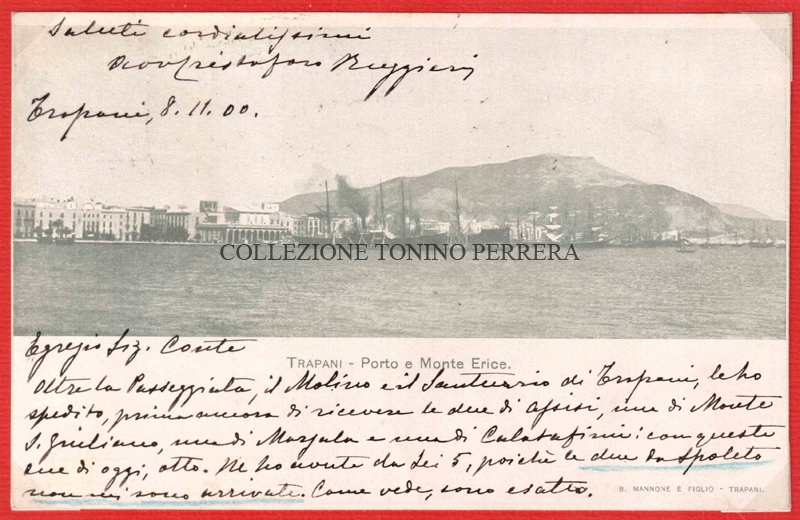 Saluti cordialissimi
Cristoforo Ruggieri
Trapani, 8.11.00.
COLLEZIONE TONINO PERRERA
Egregio Sig. Conte
TRAPANI - Porto e Monte Erice.
Oltre la Passeggiata, il Molino e il Santuario di Trapani, le ho
spedito, prima ancora di ricevere le due di Assisi, una di Monte
S. Giuliano, una di Marsala e una di Calatafimi: con queste
due di oggi, otto. Ne ho avute da Lei 5, poichè le due da Spoleto
non mi sono arrivate. Come vede, sono esatto.
B. MANNONE E FIGLIO - TRAPANI.